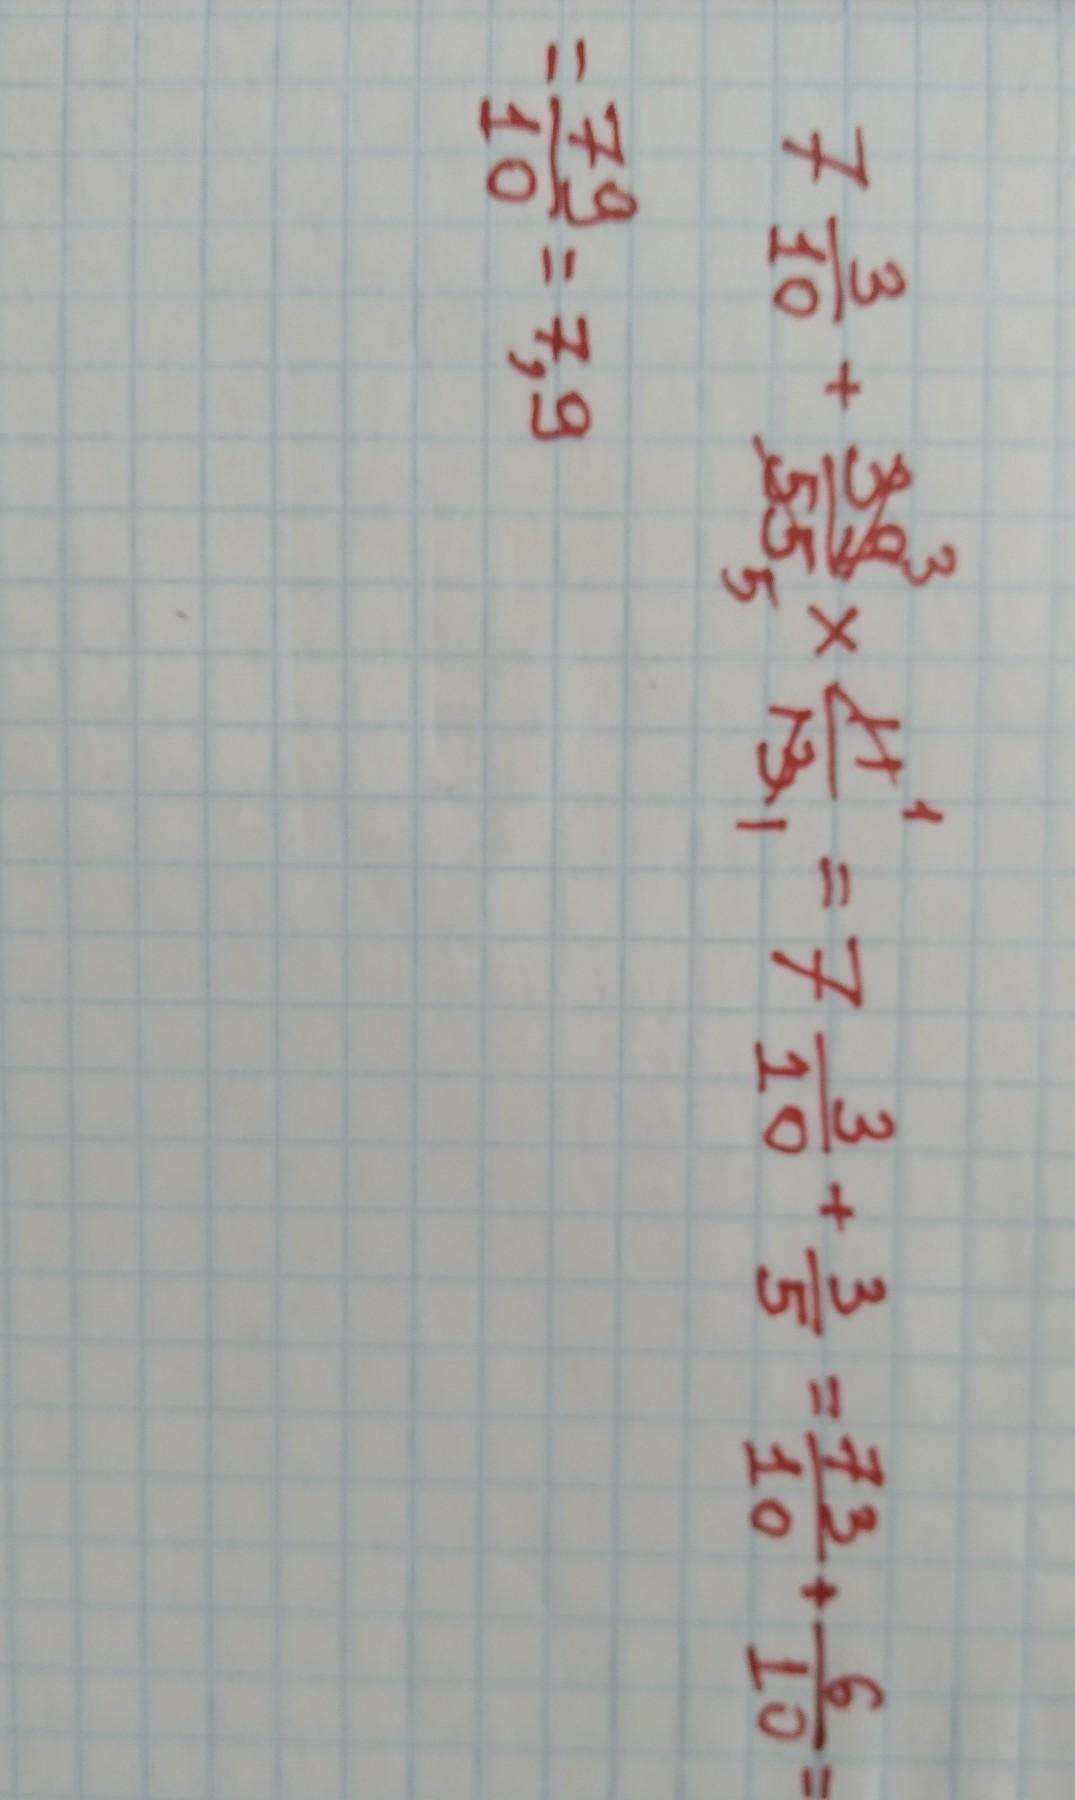 7 3/10 + 39/55 3 5 × 11/13 1 1 = 7 3/10 + 3/5 = 73/10 + 6/10 =
= 79/10 = 7,9